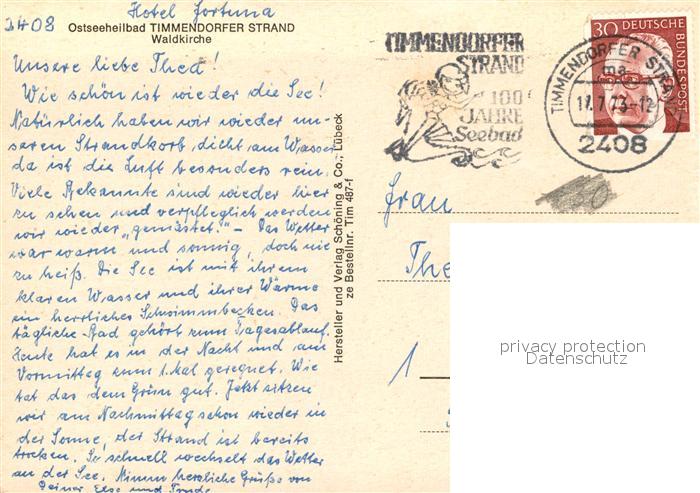 2408
Hotel Fortuna
Ostseeheilbad TIMMENDORFER STRAND
Waldkirche
Unsere liebe Thea!
Wie schön ist wieder die See!
Natürlich haben wir wieder un-
seren Strandkorb dicht am Wasser
da ist die Luft besonders rein.
Viele Bekannte sind wieder hier
zu sehen und verpfleglich werden
wir wieder „gemästet." – Das Wetter
war warm und sonnig, doch nie
zu heiß. Die See ist mit ihrem
klaren Wasser und ihrer Wärme
ein herrliches Schwimmbecken. Das
tägliche Bad gehört zum Tagesablauf.
Heute hat es in der Nacht und am
Vormittag zum 1. Mal geregnet. Wie
tat das dem Grün gut. Jetzt sitzen
wir am Nachmittag schon wieder in
der Sonne, der Strand ist bereits
trocken. So schnell wechselt das Wetter
an der See. Nimm herzliche Grüße von
Deiner Else und Trude
Hersteller und Verlag Schöning & Co., Lübeck
ze Bestellnr. Tim 487-f
TIMMENDORFER
STRAND
100
JAHRE
Seebad
TIMMENDORFER STRAND
ma
17.7.73-12
2408
30 DEUTSCHE
BUNDESPOST
Frau
The
1
privacy protection
Datenschutz